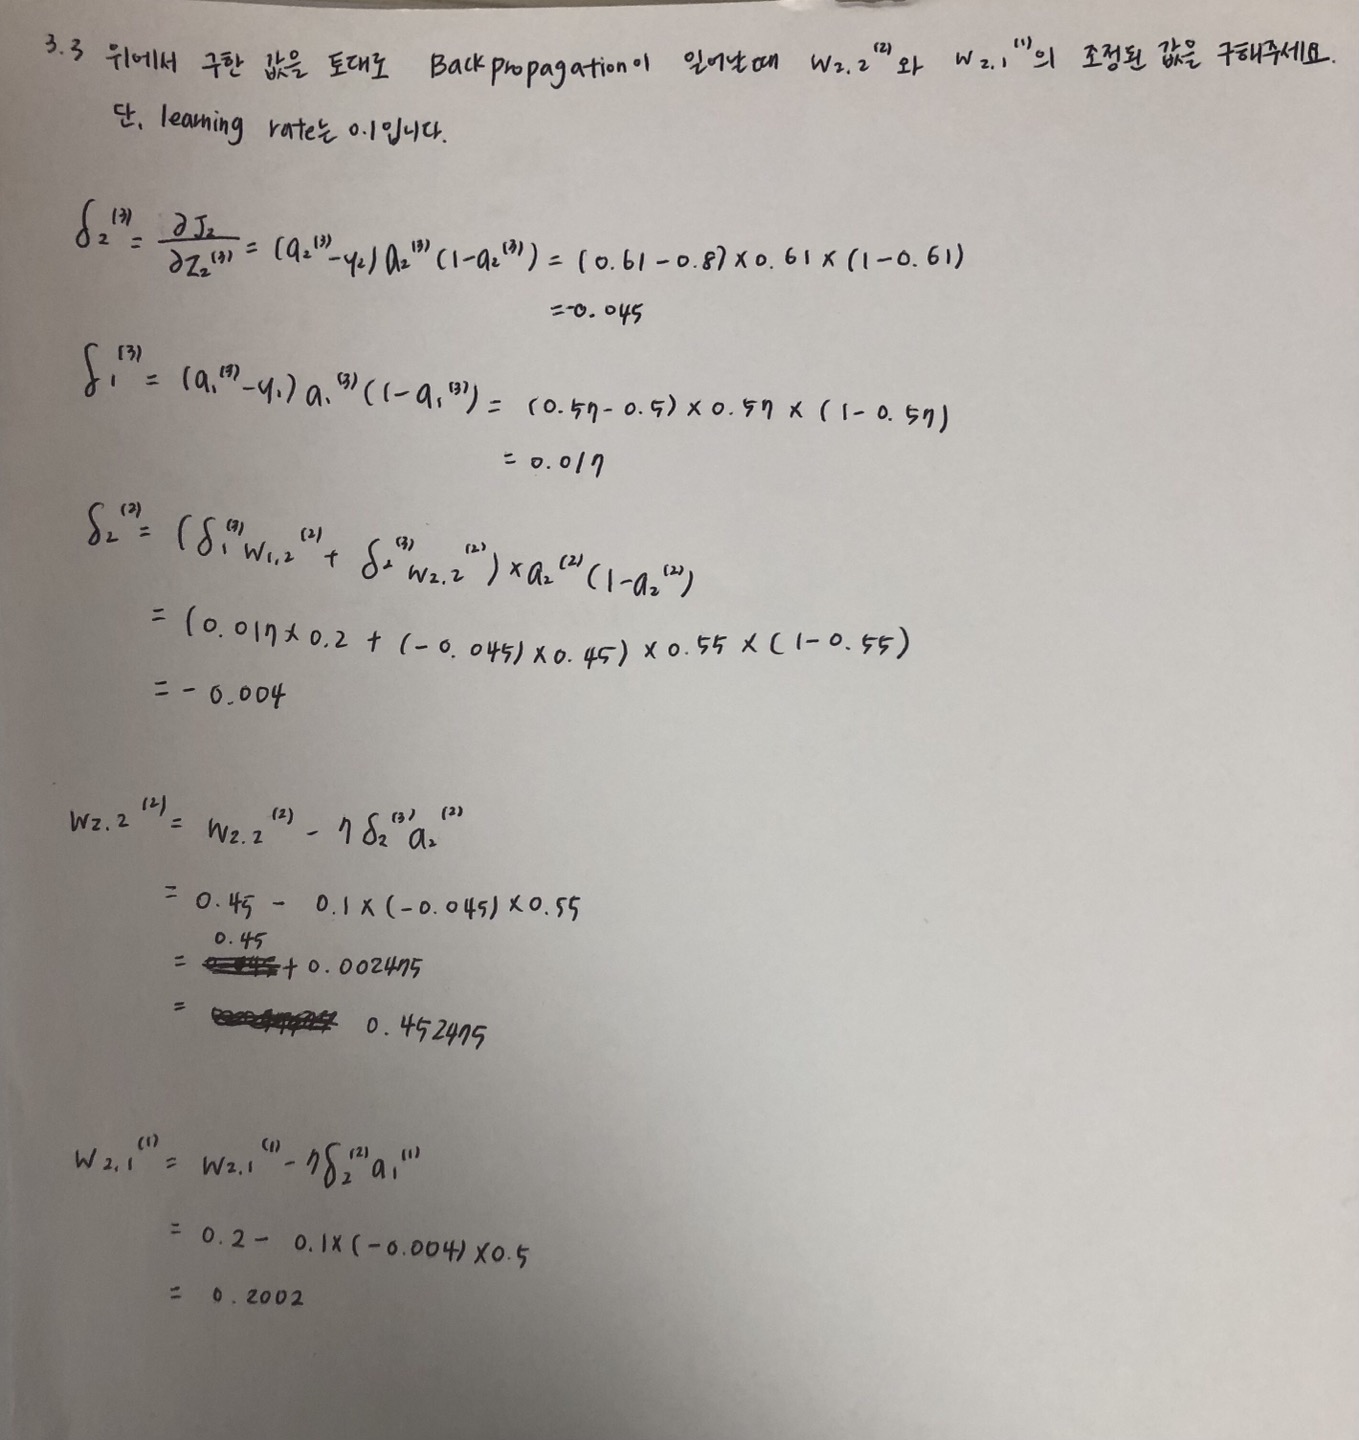 3.3 위에서 구한 값을 토대로 Back propagation이 일어날때 W₂,₂⁽²⁾와 W₂,₁⁽¹⁾의 조정된 값을 구해주세요.
단, learning rate는 0.1입니다.
δ₂⁽³⁾ = ∂J₂/∂Z₂⁽³⁾ = (a₂⁽³⁾-y₂) a₂⁽³⁾ (1-a₂⁽³⁾) = (0.61-0.8) × 0.61 × (1-0.61)
= -0.045
δ₁⁽³⁾ = (a₁⁽³⁾-y₁) a₁⁽³⁾ (1-a₁⁽³⁾) = (0.57-0.5) × 0.57 × (1-0.57)
= 0.017
δ₂⁽²⁾ = (δ₁⁽³⁾ W₁,₂⁽²⁾ + δ₂⁽³⁾ W₂,₂⁽²⁾) × a₂⁽²⁾ (1-a₂⁽²⁾)
= (0.017 × 0.2 + (-0.045) × 0.45) × 0.55 × (1-0.55)
= -0.004
W₂,₂⁽²⁾ = W₂,₂⁽²⁾ - η δ₂⁽³⁾ a₂⁽²⁾
= 0.45 - 0.1 × (-0.045) × 0.55
= 0.45 + 0.002475
= 0.452475
W₂,₁⁽¹⁾ = W₂,₁⁽¹⁾ - η δ₂⁽²⁾ a₁⁽¹⁾
= 0.2 - 0.1 × (-0.004) × 0.5
= 0.2002